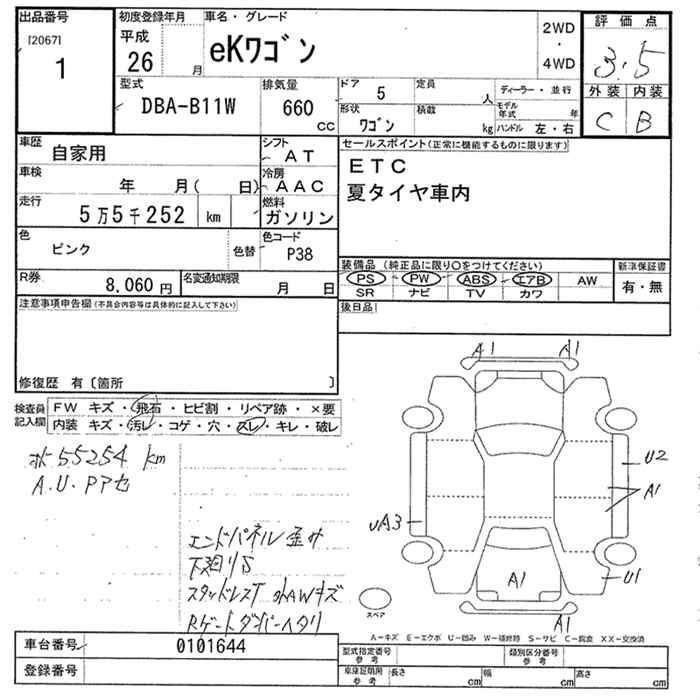 出品番号
[2067]
1
初度登録年月
平成
26 月
車名・グレード
eKワゴン
2WD
・
4WD
評価点
3.5
外装 内装
C B
型式
DBA-B11W
排気量
660 cc
ドア 5
形状 ワゴン
定員 人
積載 kg
ディーラー・並行
モデル年式 年
ハンドル 左・右
車歴 自家用
シフト AT
車検 年 月( 日)
冷房 AAC
走行 5万5千252 km
燃料 ガソリン
色 ピンク
色替
色コード P38
R券 8,060円
名変通知期限 月 日
セールスポイント(正常に機能するものに限ります)
ETC
夏タイヤ車内
装備品 (純正品に限り○をつけてください)
PS PW ABS エアB AW
SR ナビ TV カワ
新準保証書
有・無
後日品
注意事項申告欄(不具合内容等は具体的に記入して下さい)
修復歴 有〔箇所 〕
検査員記入欄
FW キズ・飛石・ヒビ割・リペア跡・×要
内装 キズ・汚レ・コゲ・穴・スレ・キレ・破レ
ホ55254 km
A.U.Pアセ
エンドパネル歪み
下廻りS
スタッドレスT
AWキズ
Rゲートダンパーヘタリ
A1 A1
U2
A1
UA3
U1
A1
A1
スペア
A-キズ E-エクボ U-凹み W-補修跡 S-サビ C-腐食 XX-交換済
車台番号 0101644
登録番号
型式指定番号 参考
類別区分番号 参考
車庫証明用 参考
長さ cm 幅 cm 高さ cm